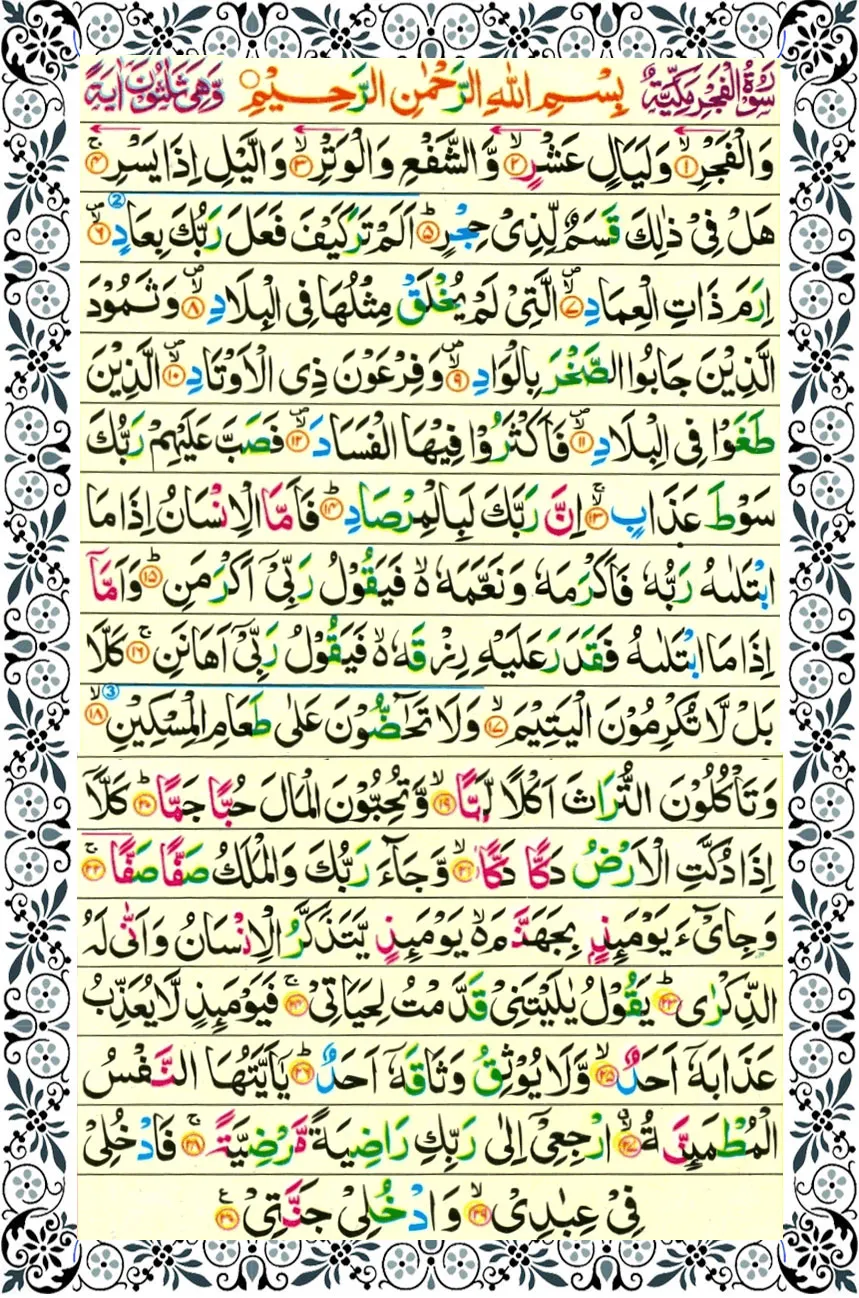 سُوْرَةُ الْفَجْرِ مَكِّيَّةٌ بِسْمِ اللهِ الرَّحْمٰنِ الرَّحِيْمِ وَّهِىَ ثَلٰثُوْنَ اٰيَةً
وَالْفَجْرِ ۙ﴿۱﴾ وَلَيَالٍ عَشْرٍ ۙ﴿۲﴾ وَّالشَّفْعِ وَالْوَتْرِ ۙ﴿۳﴾ وَالَّيْلِ اِذَا يَسْرِ ۚ﴿۴﴾
هَلْ فِىْ ذٰلِكَ قَسَمٌ لِّذِىْ حِجْرٍ ؕ﴿۵﴾ اَلَمْ تَرَ كَيْفَ فَعَلَ رَبُّكَ بِعَادٍ ۙ﴿۶﴾ 2
اِرَمَ ذَاتِ الْعِمَادِ ۙ﴿۷﴾ الَّتِىْ لَمْ يُخْلَقْ مِثْلُهَا فِى الْبِلَادِ ۙ﴿۸﴾ وَثَمُوْدَ
الَّذِيْنَ جَابُوا الصَّخْرَ بِالْوَادِ ۙ﴿۹﴾ وَفِرْعَوْنَ ذِى الْاَوْتَادِ ۙ﴿۱۰﴾ الَّذِيْنَ
طَغَوْا فِى الْبِلَادِ ۙ﴿۱۱﴾ فَاَكْثَرُوْا فِيْهَا الْفَسَادَ ۙ﴿۱۲﴾ فَصَبَّ عَلَيْهِمْ رَبُّكَ
سَوْطَ عَذَابٍ ۚ﴿۱۳﴾ اِنَّ رَبَّكَ لَبِالْمِرْصَادِ ؕ﴿۱۴﴾ فَاَمَّا الْاِنْسَانُ اِذَا مَا
ابْتَلٰىهُ رَبُّهٗ فَاَكْرَمَهٗ وَنَعَّمَهٗ ۙ فَيَقُوْلُ رَبِّىْۤ اَكْرَمَنِ ؕ﴿۱۵﴾ وَاَمَّاۤ
اِذَا مَا ابْتَلٰىهُ فَقَدَرَ عَلَيْهِ رِزْقَهٗ ۙ فَيَقُوْلُ رَبِّىْۤ اَهَانَنِ ۚ﴿۱۶﴾ كَلَّا
بَلْ لَّا تُكْرِمُوْنَ الْيَتِيْمَ ۙ﴿۱۷﴾ وَلَا تَحٰٓضُّوْنَ عَلٰى طَعَامِ الْمِسْكِيْنِ ۙ﴿۱۸﴾ 3
وَتَاْكُلُوْنَ التُّرَاثَ اَكْلًا لَّمًّا ۙ﴿۱۹﴾ وَّتُحِبُّوْنَ الْمَالَ حُبًّا جَمًّا ؕ﴿۲۰﴾ كَلَّاۤ
اِذَا دُكَّتِ الْاَرْضُ دَكًّا دَكًّا ۙ﴿۲۱﴾ وَّجَآءَ رَبُّكَ وَالْمَلَكُ صَفًّا صَفًّا ۚ﴿۲۲﴾
وَجِاىْٓءَ يَوْمَئِذٍۭ بِجَهَنَّمَ ۙ يَوْمَئِذٍ يَّتَذَكَّرُ الْاِنْسَانُ وَاَنّٰى لَهُ
الذِّكْرٰى ؕ﴿۲۳﴾ يَقُوْلُ يٰلَيْتَنِىْ قَدَّمْتُ لِحَيَاتِىْ ۚ﴿۲۴﴾ فَيَوْمَئِذٍ لَّا يُعَذِّبُ
عَذَابَهٗۤ اَحَدٌ ۙ﴿۲۵﴾ وَّلَا يُوْثِقُ وَثَاقَهٗۤ اَحَدٌ ؕ﴿۲۶﴾ يٰۤاَيَّتُهَا النَّفْسُ
الْمُطْمَئِنَّةُ ۖ﴿۲۷﴾ ارْجِعِىْۤ اِلٰى رَبِّكِ رَاضِيَةً مَّرْضِيَّةً ۚ﴿۲۸﴾ فَادْخُلِىْ
فِىْ عِبٰدِىْ ۙ﴿۲۹﴾ وَادْخُلِىْ جَنَّتِىْ ﴿۳۰﴾ ع